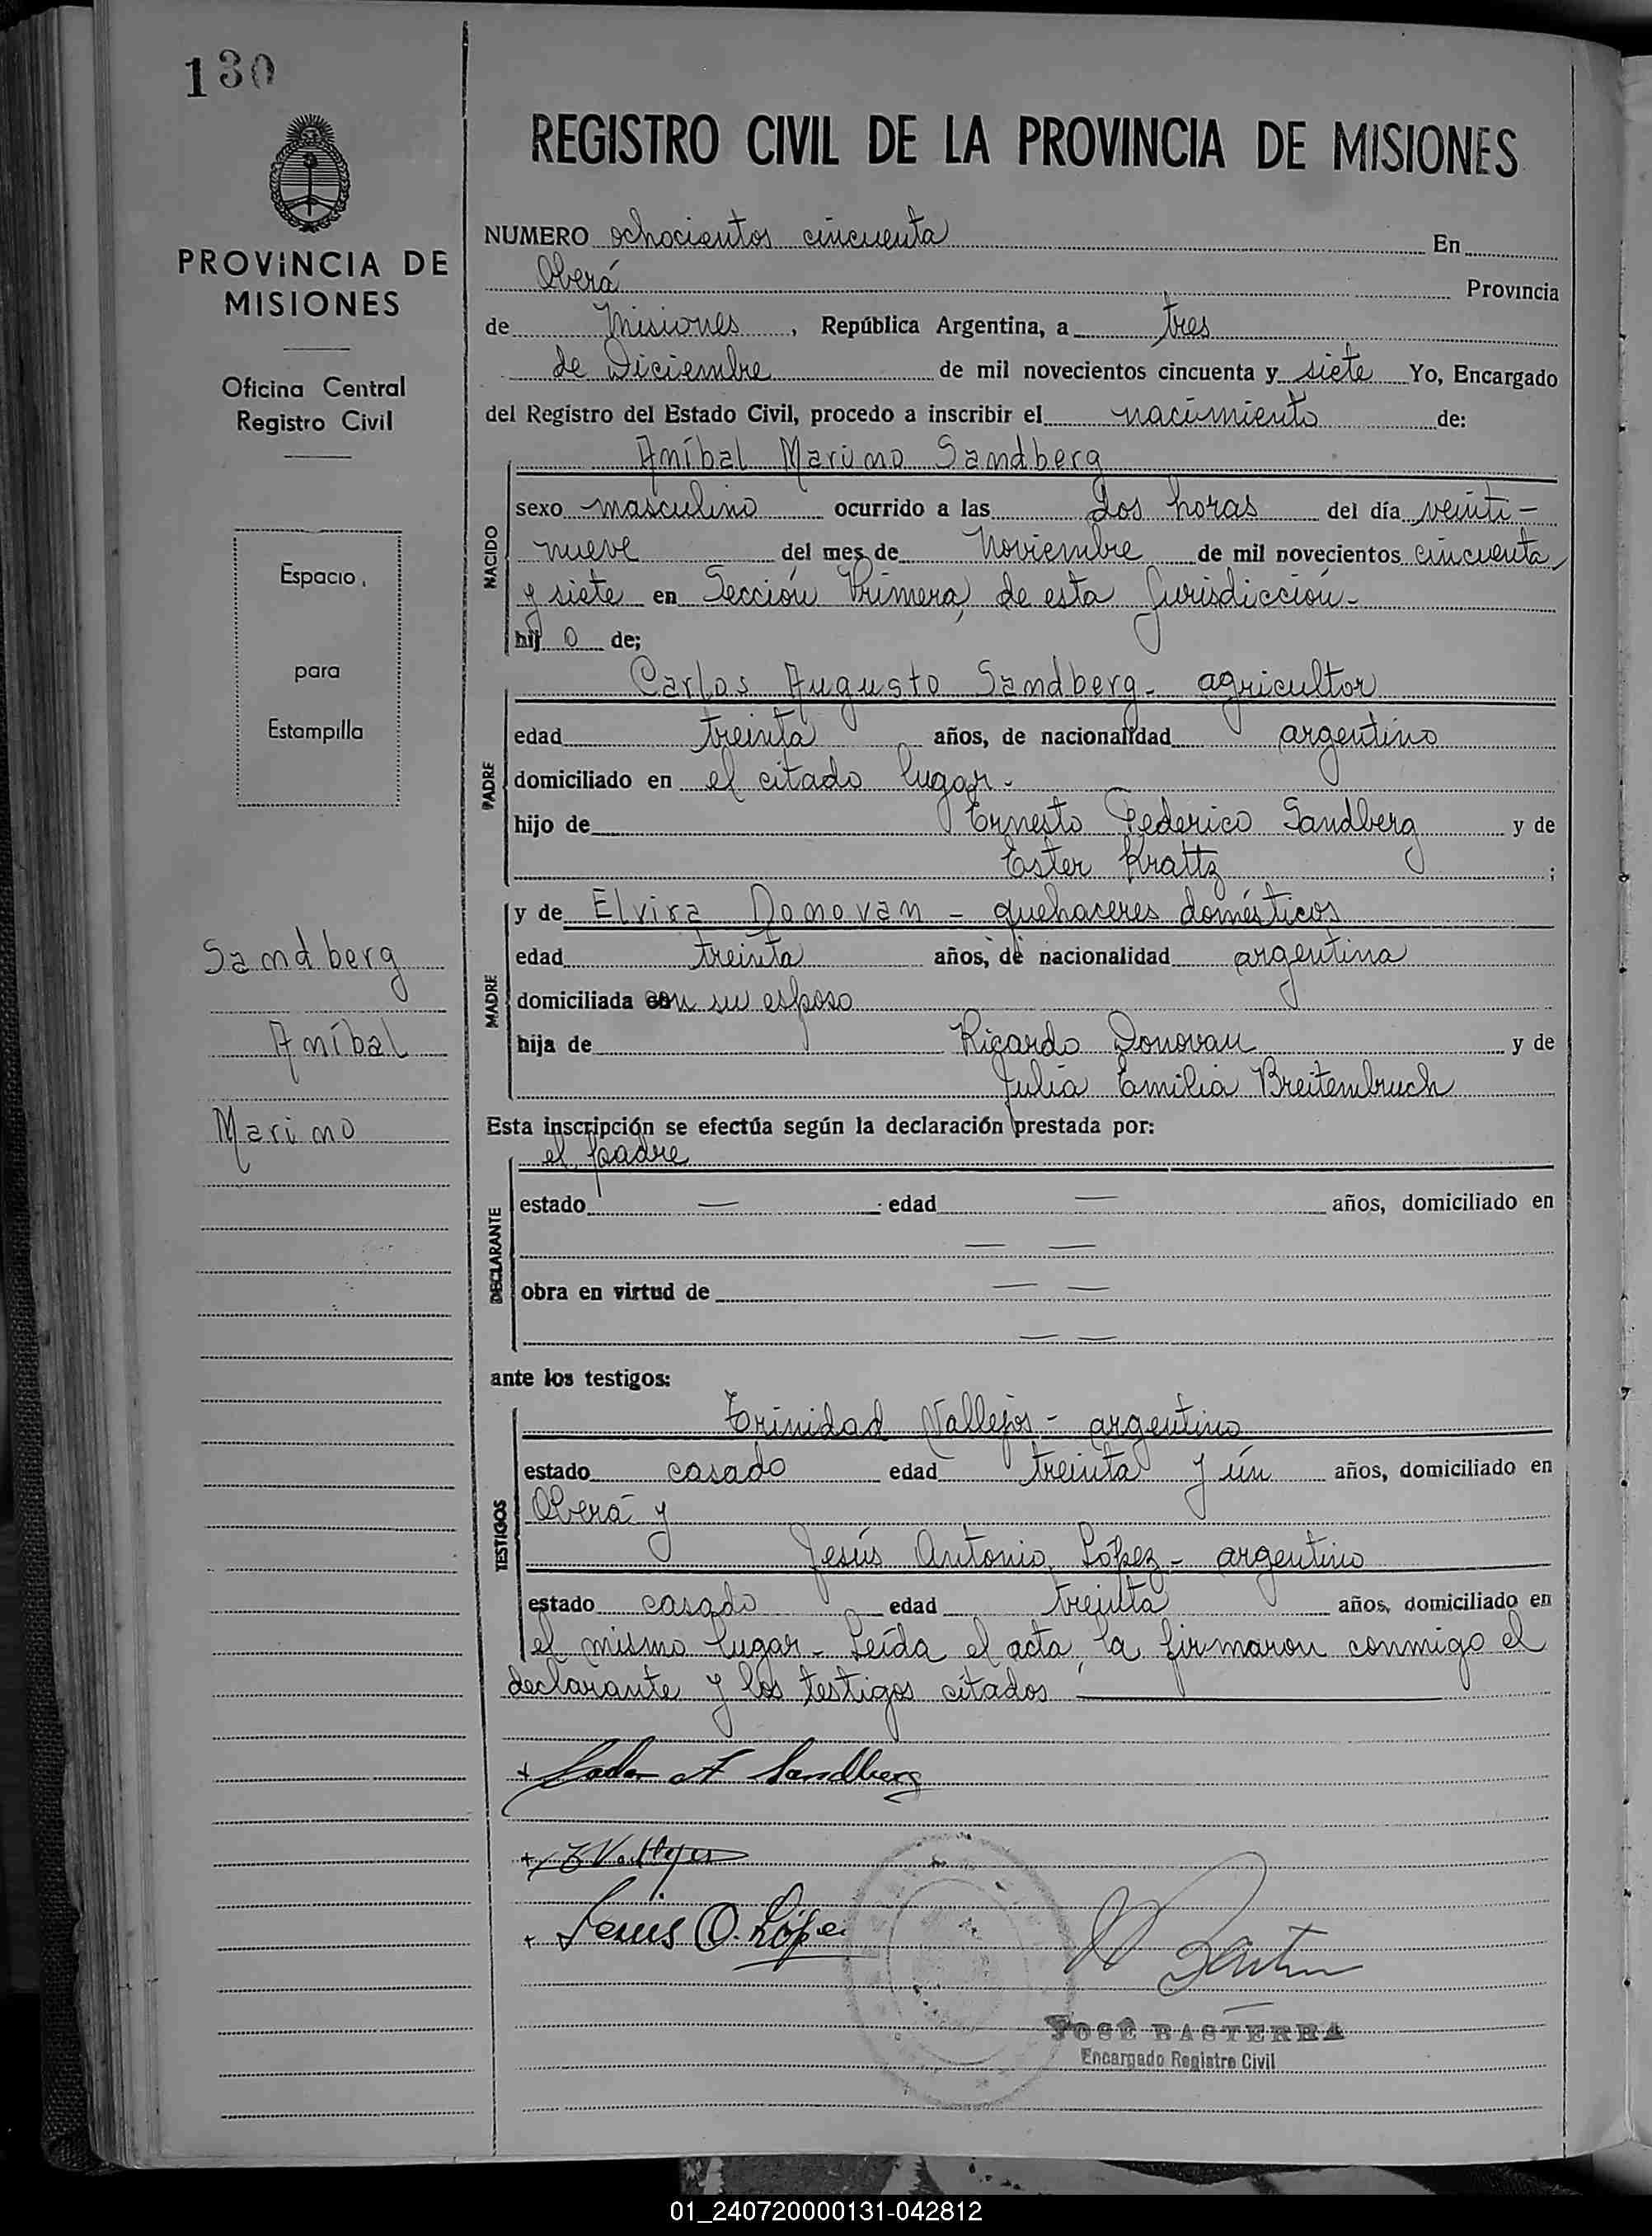 130
PROVINCIA DE
MISIONES
Oficina Central
Registro Civil
Espacio
para
Estampilla
Sandberg
Aníbal
Marino
REGISTRO CIVIL DE LA PROVINCIA DE MISIONES
NUMERO ochocientos cincuenta En
Oberá Provincia
de Misiones, República Argentina, a tres
de Diciembre de mil novecientos cincuenta y siete Yo, Encargado
del Registro del Estado Civil, procedo a inscribir el nacimiento de:
NACIDO
Aníbal Marino Sandberg
sexo masculino ocurrido a las dos horas del día veinti-
nueve del mes de Noviembre de mil novecientos cincuenta
y siete en Sección Primera, de esta Jurisdicción-
hij o de;
PADRE
Carlos Augusto Sandberg- agricultor
edad treinta años, de nacionalidad argentino
domiciliado en el citado lugar-
hijo de Ernesto Federico Sandberg y de
Ester Krattz ;
MADRE
y de Elvira Donovan - quehaceres domésticos
edad treinta años, de nacionalidad argentina
domiciliada con su esposo
hija de Ricardo Donovan y de
Julia Emilia Breitembruch
Esta inscripción se efectúa según la declaración prestada por:
DECLARANTE
el padre
estado — edad — años, domiciliado en
— —
obra en virtud de — —
— —
ante los testigos:
TESTIGOS
Trinidad Vallejos- argentino
estado casado edad treinta y ún años, domiciliado en
Oberá y
Jesús Antonio López- argentino
estado casado edad treinta años, domiciliado en
el mismo lugar- Leída el acta, la firmaron conmigo el
declarante y los testigos citados
A Sandberg
Jesús A. López
JOSÉ BASTERRA
Encargado Registro Civil
01_240720000131-042812